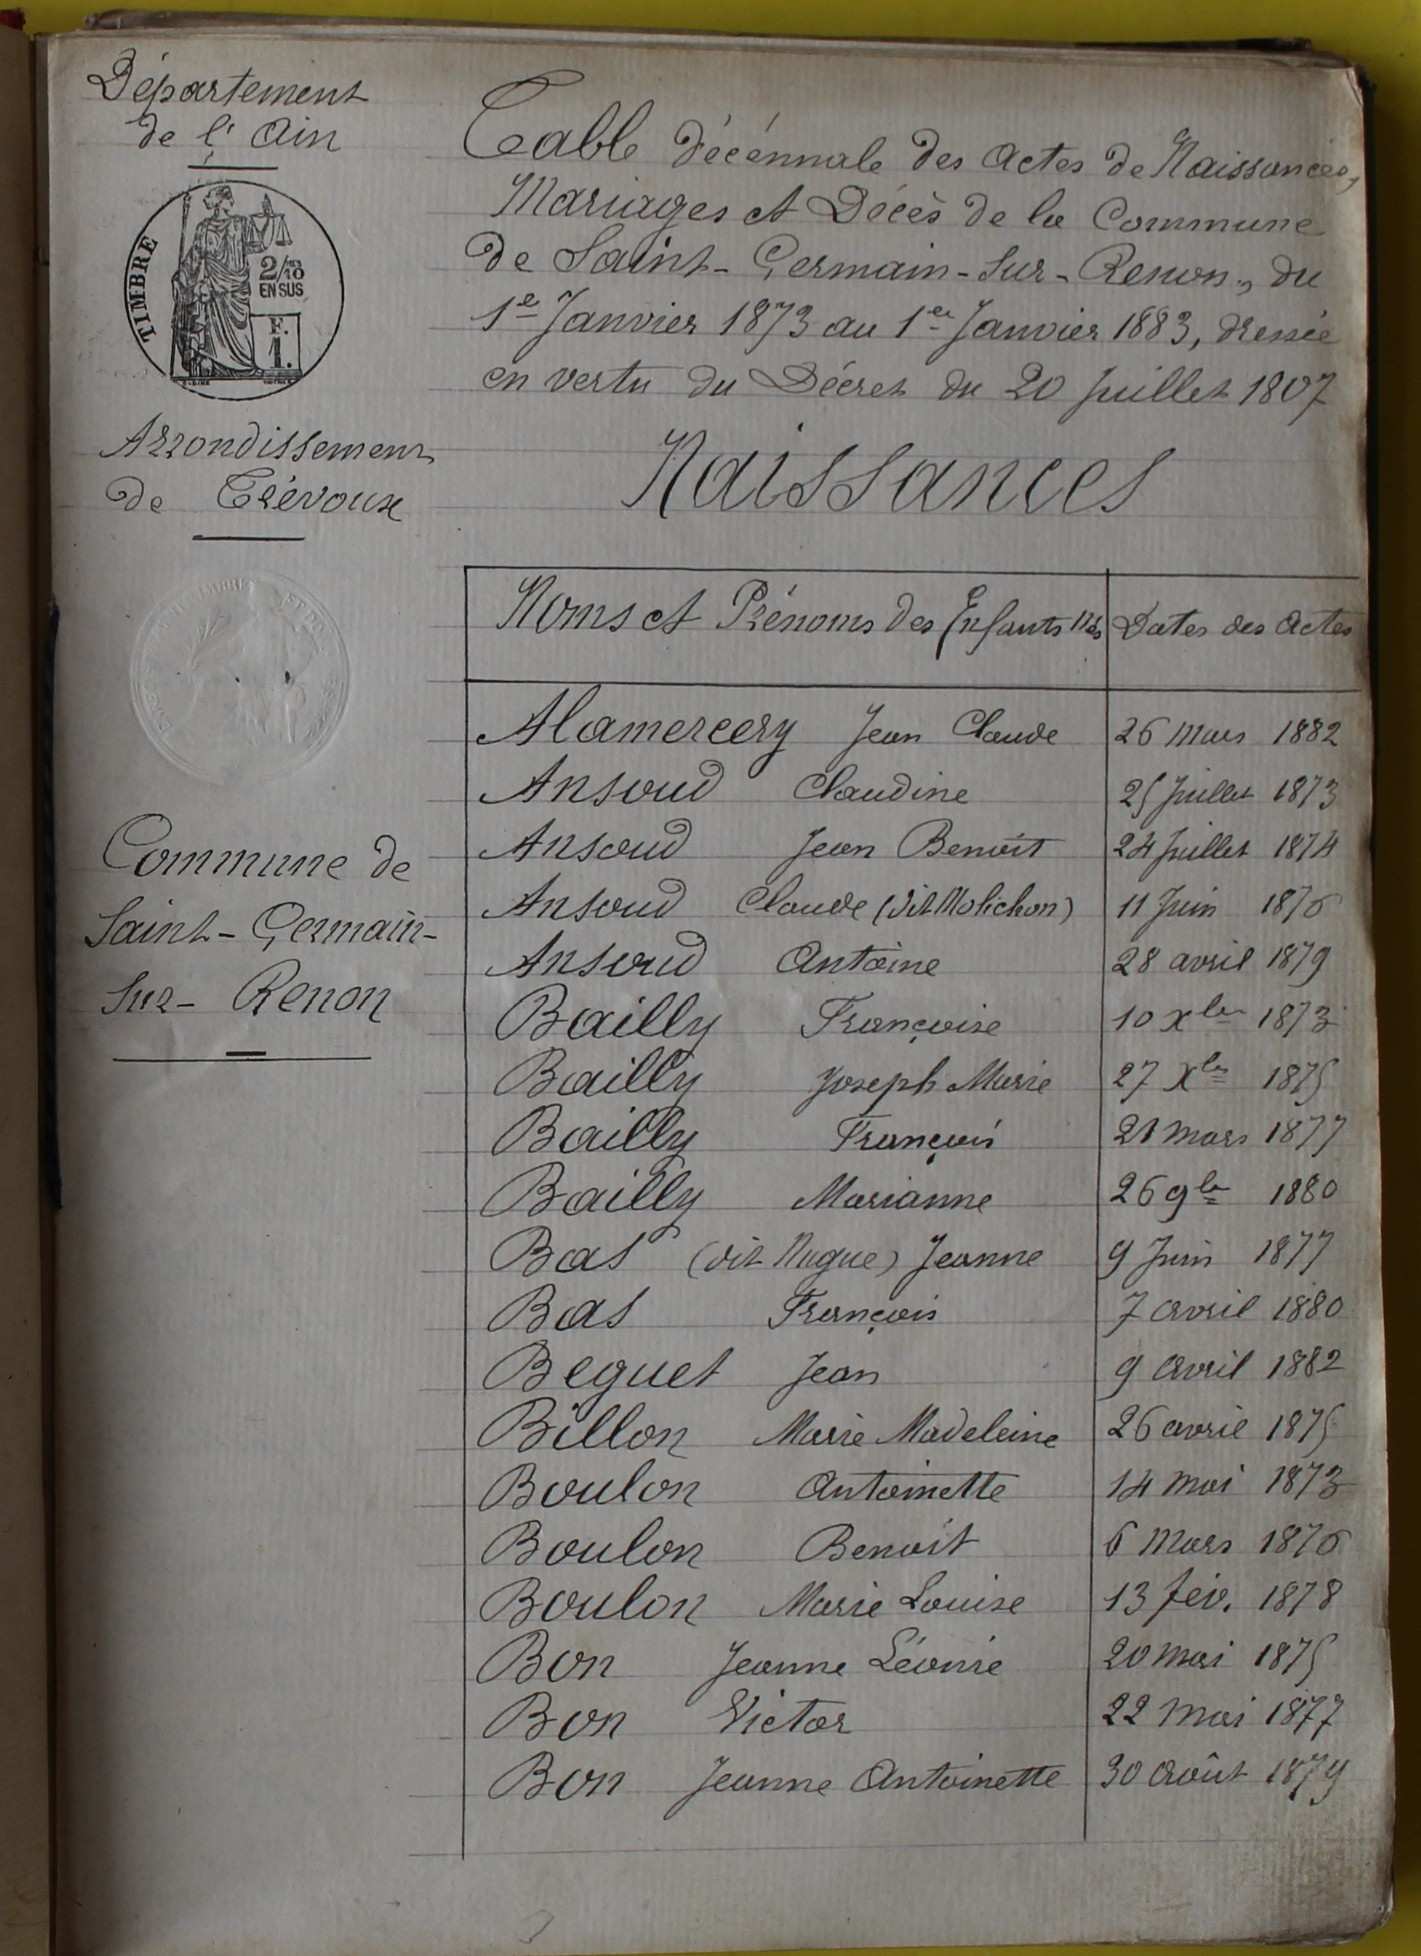 Département
de l'Ain
TIMBRE
2/10
EN SUS
F.
1.
Arrondissement
de Trévoux
Commune de
Saint-Germain-
sur-Renon
Table décénnale des Actes de Naissances,
Mariages et Décès de la Commune
de Saint-Germain-sur-Renon, du
1er Janvier 1873 au 1er Janvier 1883, dressée
en vertu du Décret du 20 Juillet 1807
Naissances
Noms et Prénoms des Enfants Nés Dates des Actes
Alamercery Jean Claude 26 Mars 1882
Ansoud Claudine 25 Juillet 1873
Ansoud Jean Benoit 24 Juillet 1874
Ansoud Claude (dit Molichon) 11 Juin 1876
Ansoud Antoine 28 avril 1879
Bailly Françoise 10 Xbre 1873
Bailly Joseph Marie 27 Xbre 1875
Bailly François 21 mars 1877
Bailly Marianne 26 9bre 1880
Bas (dit Nugue) Jeanne 9 Juin 1877
Bas François 7 avril 1880
Beguet Jean 9 avril 1882
Billon Marie Madeleine 26 avril 1875
Boulon Antoinette 14 mai 1873
Boulon Benoit 6 Mars 1876
Boulon Marie Louise 13 fév. 1878
Bon Jeanne Léonie 20 mai 1875
Bon Victor 22 mai 1877
Bon Jeanne Antoinette 30 Août 1879